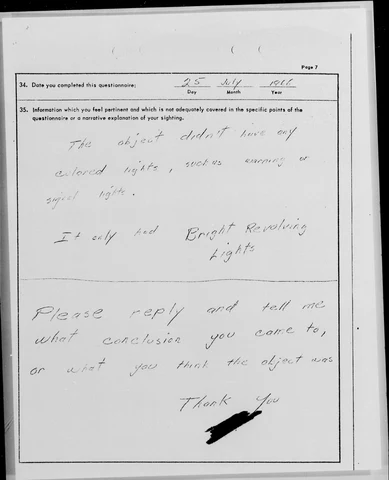 Page 7
34. Date you completed this questionnaire: 25 July
Day Month Year
35. Information which you feel pertinent and which is not adequately covered in the specific points of the
questionnaire or a narrative explanation of your sighting.
The object didn't have any
colored lights, such as warning or
signal lights.
It only had Bright Revolving
Lights
Please reply and tell me
what conclusion you come to,
or what you think the object was
Thank You